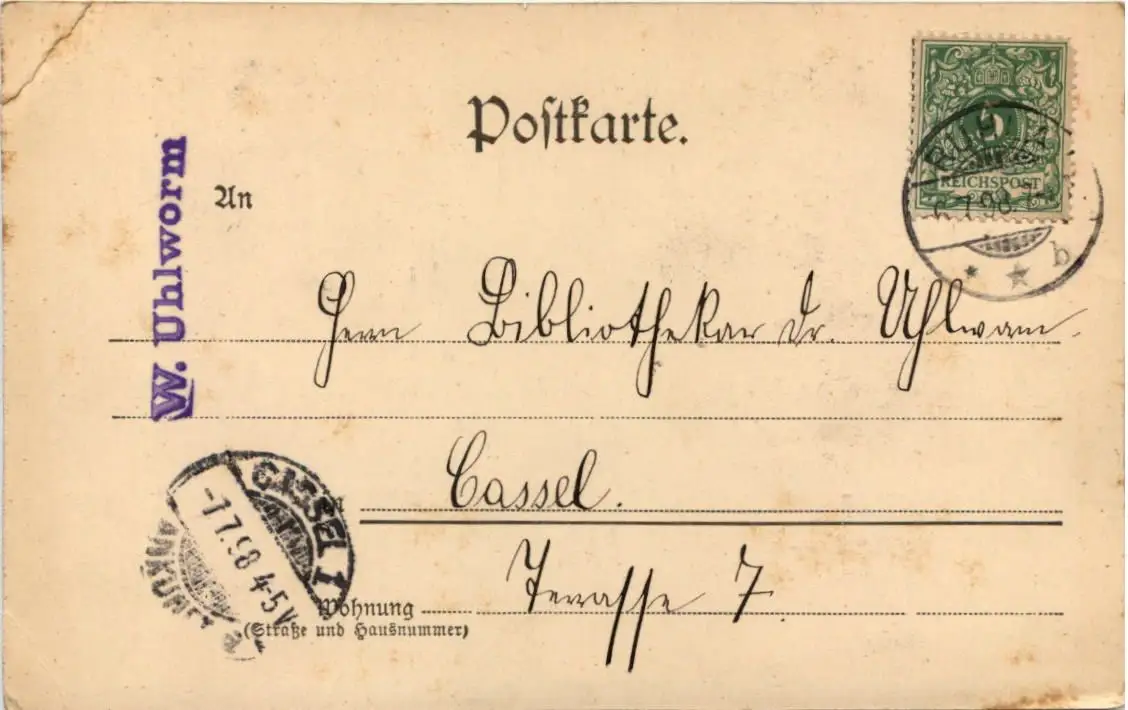 Postkarte.
W. Uhlworm
An
5
REICHSPOST
7.98.
b
Herrn Bibliothekar Dr. Uhlworm.
Cassel.
CASSEL 1
-7.7.98 4-5V
ANKUNFT
Terrasse 7.
Wohnung
(Straße und Hausnummer)